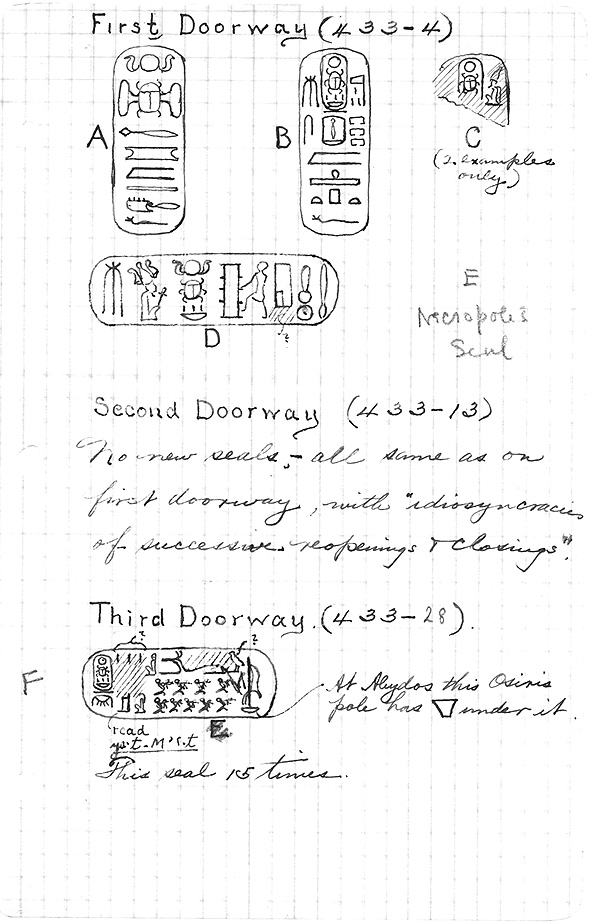 First Doorway (433-4)
A
B
C
(2 examples
only)
D
?
E
Necropolis
Seal
Second Doorway (433-13)
No new seals, - all same as on
first doorway, with "idiosyncracies
of successive reopenings & closings".
Third Doorway. (433-28).
?
?
F
At Abydos this Osiris
pole has under it.
read
E
This seal 15 times.